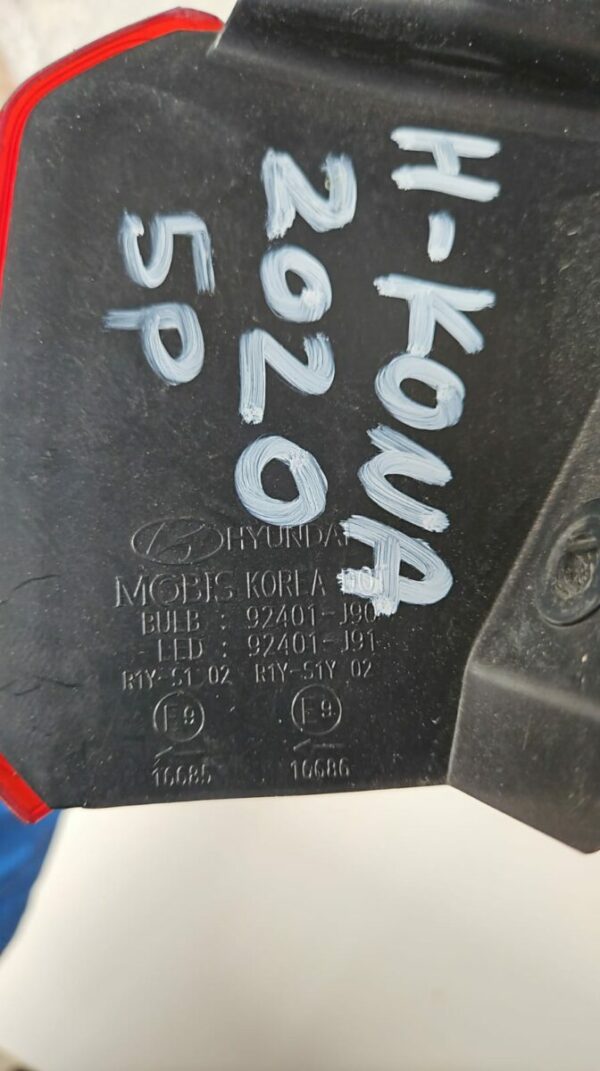 H-KONA
2020
5P
HYUNDAI
MOBIS KOREA
BULB : 92401-J90
LED : 92401-J91
R1Y-S1 02 R1Y-S1Y 02
E9 E9
16685 16686